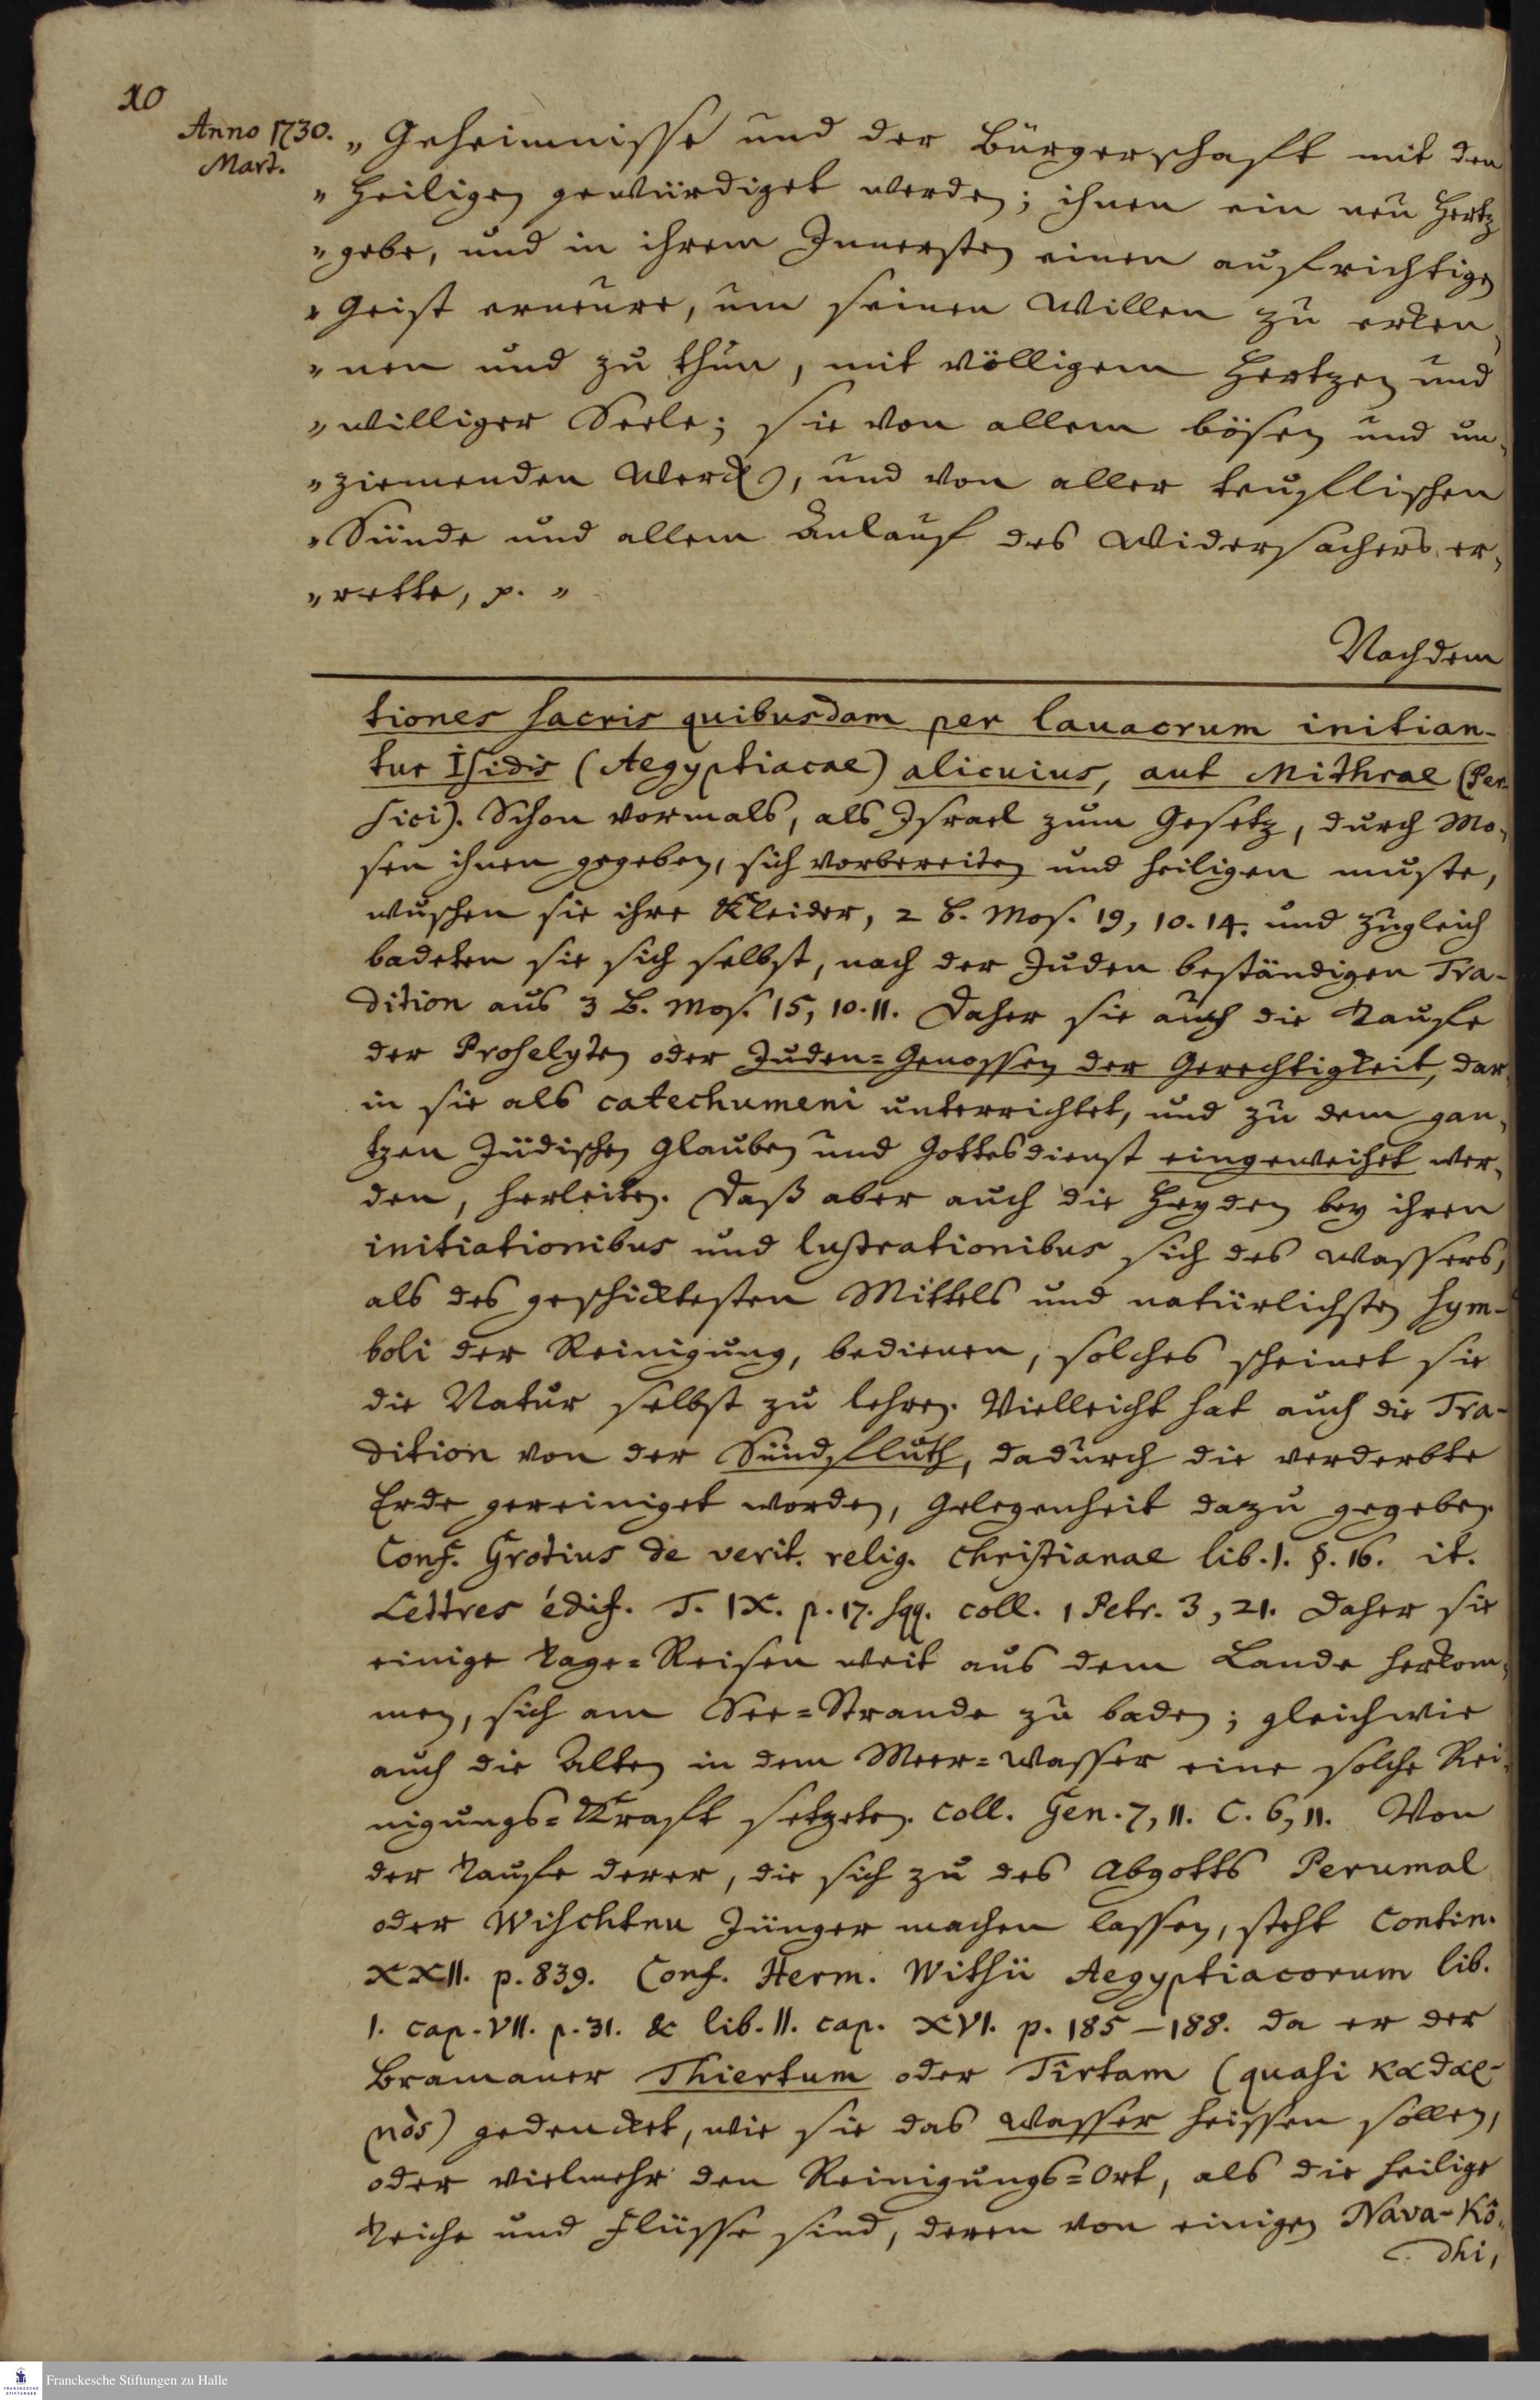 10
Anno 1730.
Mart.
„ Geheimnisse und der Bürgerschafft mit den
„ Heiligen gewürdiget werden; ihnen ein neu Hertz
„ gebe, und in ihrem Innersten einen aufrichtigen
„ Geist erneure, um seinen Willen zu erken¬
„ nen und zu thun, mit völligem Hertzen und
„ williger Seele; sie von allem bösen und un¬
„ ziemenden Werck, und von aller teuflischen
„ Sünde und allem Anlauf des Widersachers er¬
„ rette, p. „
Nachdem
tiones sacris quibusdam per lauacrum initian-
tur Isidis (Aegyptiacae) alicuius, aut Mithrae (Per-
sici). Schon vormals, als Israel zum Gesetz, durch Mo¬
sen ihnen gegeben, sich vorbereiten und heiligen muste,
wuschen sie ihre Kleider, 2 B. Mos. 19, 10. 14. und zugleich
badeten sie sich selbst, nach der Juden beständigen Tra-
dition aus 3 B. Mos. 15, 10. 11. Daher sie auch die Taufe
der Proselyten oder Juden=Genossen der Gerechtigkeit, dar¬
in sie als catechumeni unterrichtet, und zu dem gan¬
tzen Jüdischen Glauben und Gottesdienst eingeweihet wer¬
den, herleiten. Daß aber auch die Heyden bey ihren
initiationibus und lustrationibus sich des Wassers,
als des geschicktesten Mittels und natürlichsten Sym-
boli der Reinigung, bedienen, solches scheinet sie
die Natur selbst zu lehren. Vielleicht hat auch die Tra-
dition von der Sündfluth, dadurch die verderbte
Erde gereiniget worden, Gelegenheit dazu gegeben.
Conf. Grotius de verit. relig. christianae lib. I. §. 16. it.
Lettres édif. T. IX. p. 17. sqq. coll. 1 Petr. 3, 21. Daher sie
einige Tage=Reisen weit aus dem Lande herkom¬
men, sich am See=Strande zu baden; gleichwie
auch die Alten in dem Meer=Wasser eine solche Rei¬
nigungs=Krafft setzeten. coll. Gen. 7, 11. C. 6, 11. Von
der Taufe derer, die sich zu des Abgotts Perumal
oder Wischtnu Jünger machen lassen, steht Contin.
XXII. p. 839. Conf. Herm. Witsii Aegyptiacorum lib.
I. cap. VII. p. 31. & lib. II. cap. XVI. p. 185–188. da er der
Bramaner Thiertum oder Tîrtam (quasi καθαρ-
μὸς) gedencket, wie sie das Wasser heissen sollen,
oder vielmehr den Reinigungs=Ort, als die heilige
Teiche und Flüsse sind, deren von einigen Nava-Kô¬
dhi,
Franckesche Stiftungen zu Halle